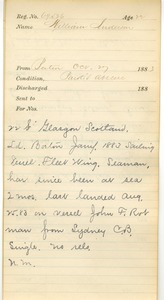 Reg. No. Age
Name William Anderson
From Oct. 27 1883
Condition,
Discharged 188
Sent to
For
Glasgow Scotland.
Ld. Balto Jany 1883 Sailing
Vessel, Fleet Wing, Seaman,
has since been at sea
2 mos. last landed Aug.
on vessel John F. Rob
man from Sydney C.B.
Single, no rels
N.M.